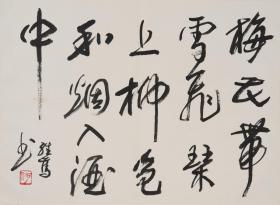 梅花带
雪飞琴
上柳色
和烟入酒
中